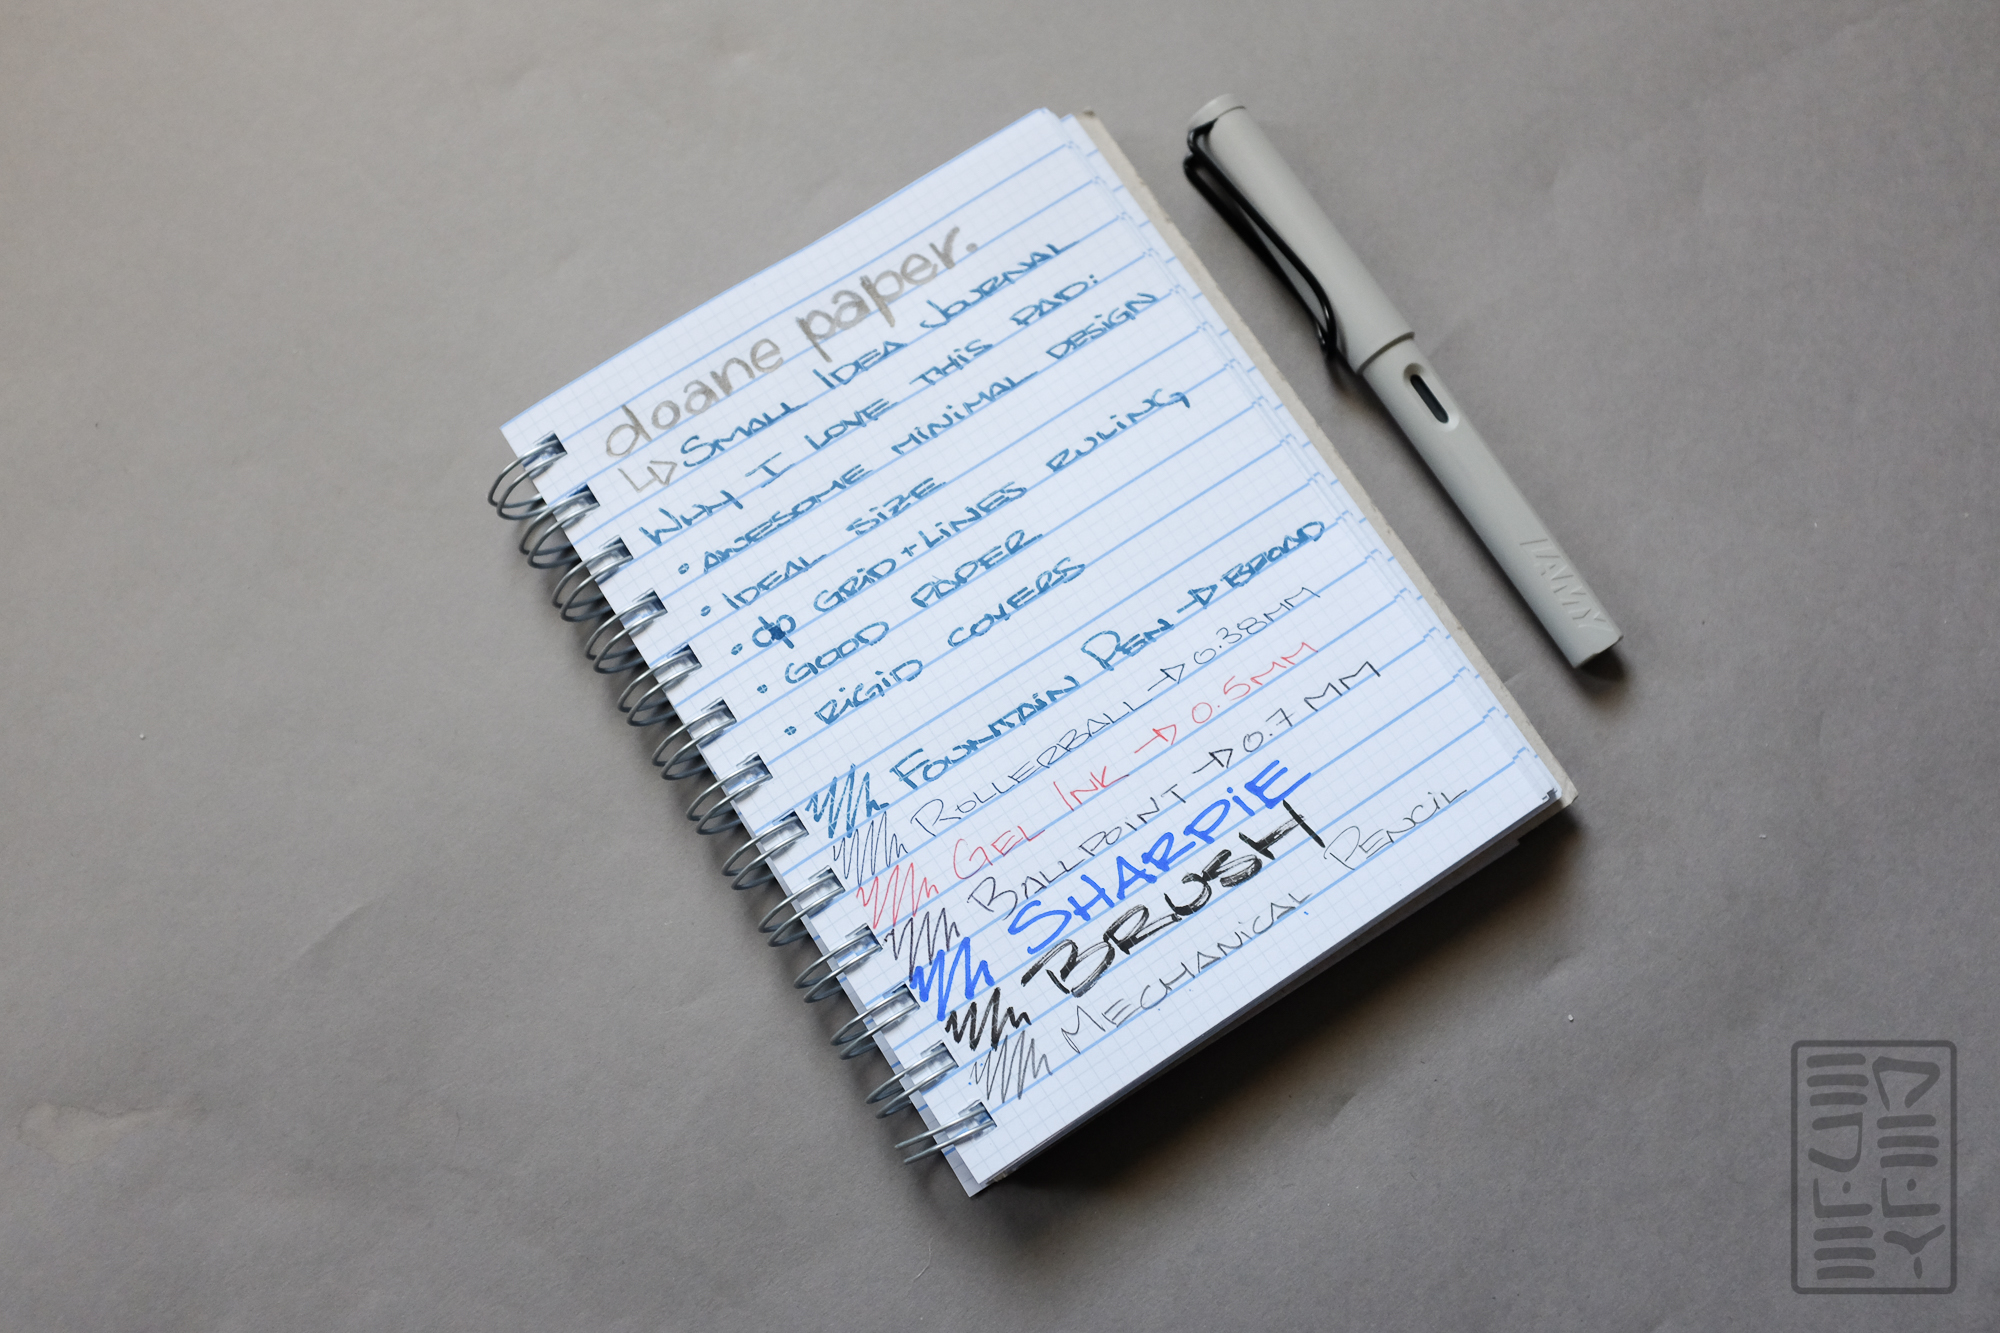 doane paper.
↳▷ SMALL IDEA JOURNAL
WHY I LOVE THIS PAD:
• AWESOME MINIMAL DESIGN
• IDEAL SIZE
• dp GRID + LINES RULING
• GOOD PAPER
• RIGID COVERS
FOUNTAIN PEN → BROAD
ROLLERBALL → 0.38MM
GEL INK → 0.5MM
BALLPOINT → 0.7 MM
SHARPIE
BRUSH
MECHANICAL PENCIL
LAMY